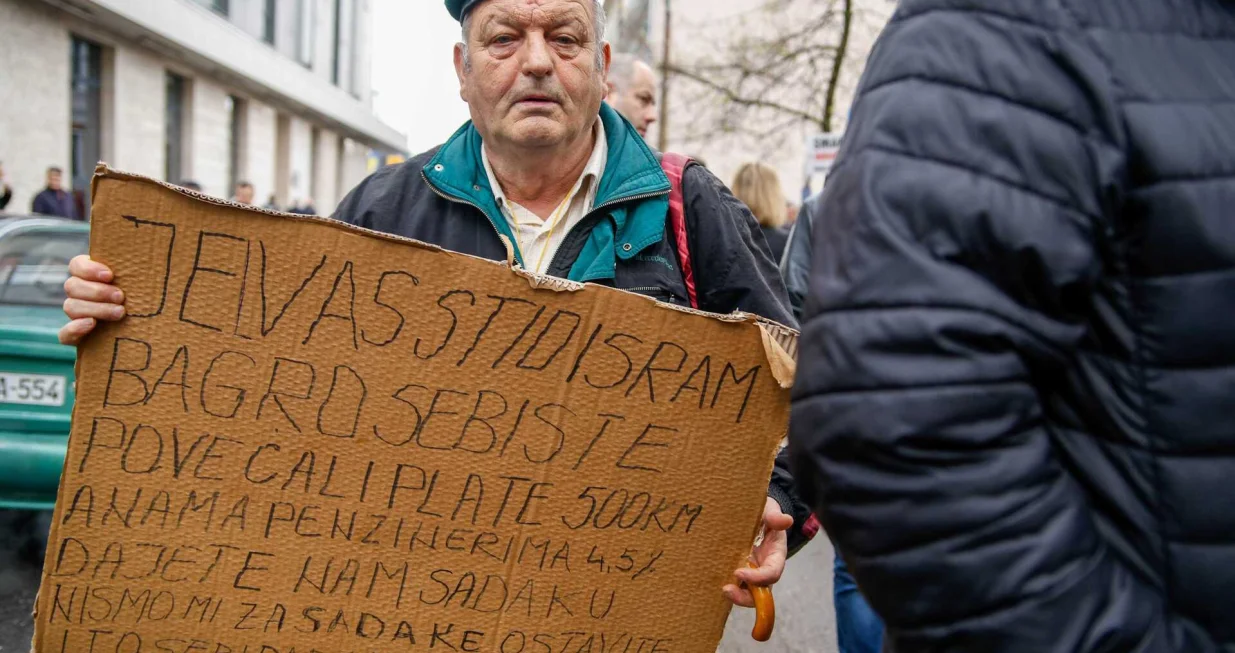 JELVAS STIDI SRAM
BAGRO SEBI STE
POVEĆALI PLATE 500KM
A NAMA PENZINERIMA 4,5%
DAJETE NAM SADAKU
NISMO MI ZA SADAKE OSTAVITE
A-554